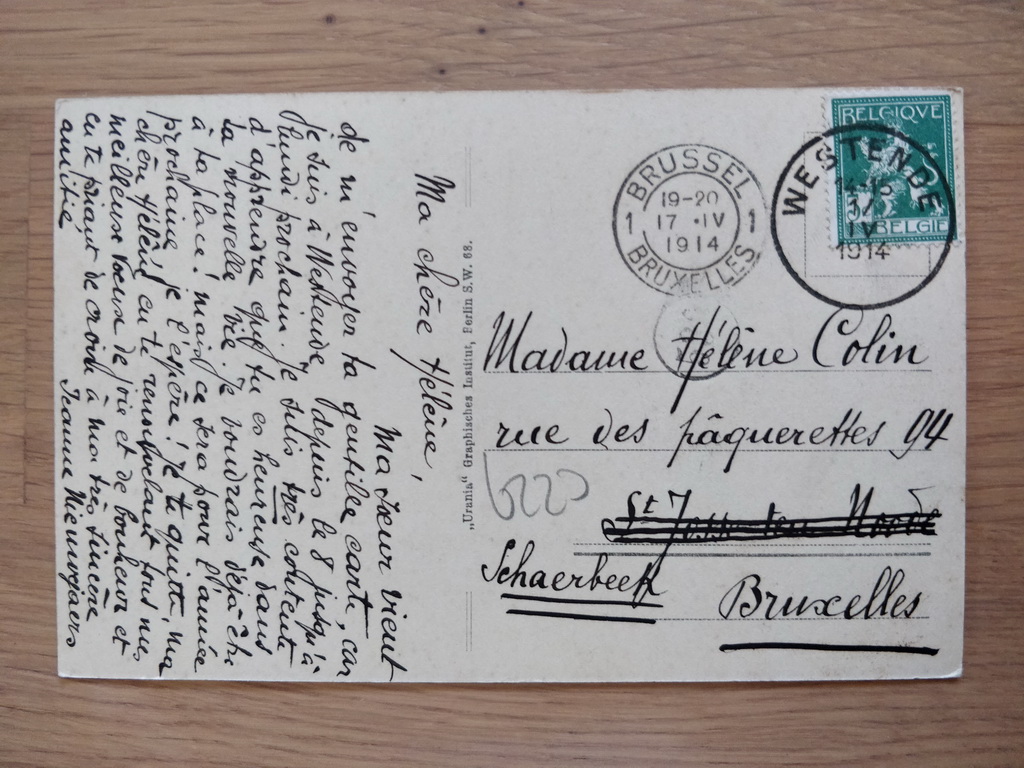 Ma chère Hélène,
Ma soeur vient
de m'envoyer ta gentille carte, car
je suis à Westende depuis le 8 jusqu'à
lundi prochain. Je suis très contente
d'apprendre que tu es heureuse dans
ta nouvelle vie. Je voudrais déjà être
à ta place! mais ce sera pour l'année
prochaine, je l'espère! Je te quitte, ma
chère Hélène en te renouvelant tous mes
meilleurs voeux de joie et de bonheur et
en te priant de croire à ma très sincère
amitié
Jeanne
"Urania" Graphisches Institut, Berlin S.W. 68.
BRUSSEL
19-20
1 17 · IV 1
1914
BRUXELLES
BELGIQUE
WESTENDE
14-15
17
IV
1914
BELGIE
Madame Hélène Colin
rue des pâquerettes 94
St Josse ten Noode
Schaerbeek
Bruxelles